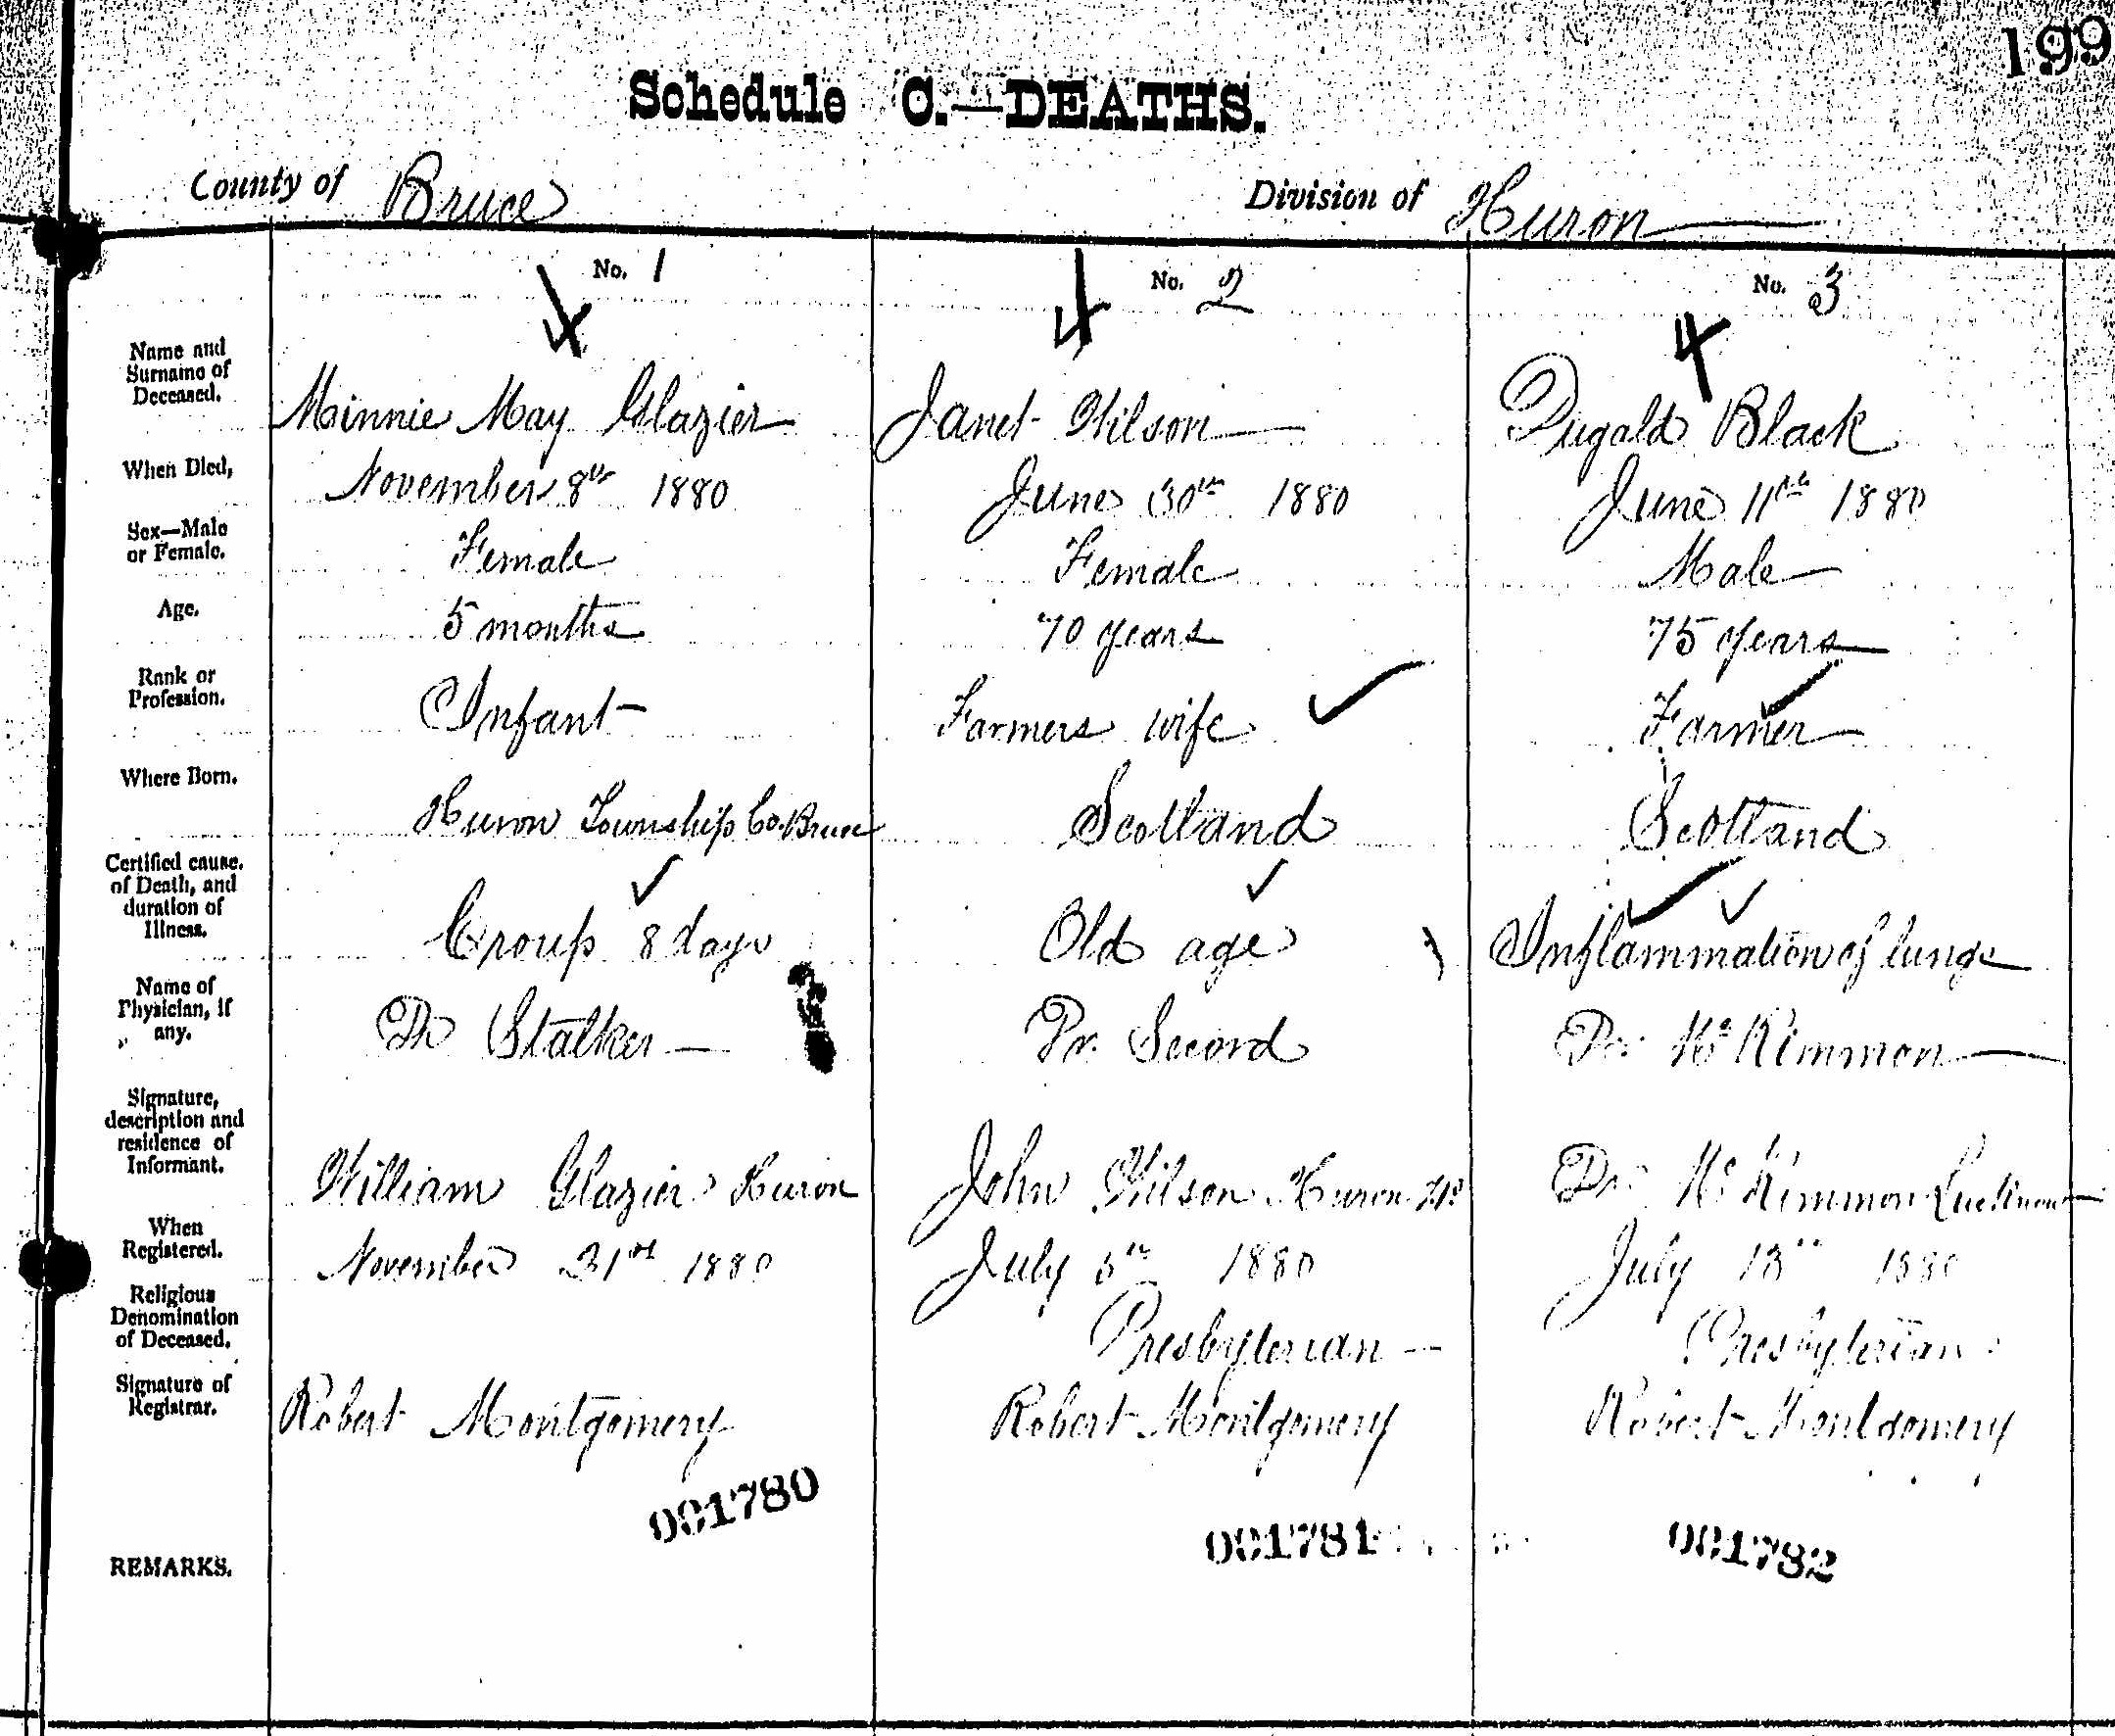 199
Schedule C.—DEATHS.
County of Bruce
Division of Huron
No. 1
No. 2
No. 3
4
4
4
Name and Surname of Deceased.
Minnie May Glazier
Janet Wilson
Dugald Black
When Died,
November 8th 1880
June 30th 1880
June 11th 1880
Sex—Male or Female.
Female
Female
Male
Age.
5 months
70 years
75 years
Rank or Profession.
Infant
Farmers wife
Farmer
Where Born.
Huron Township Co. Bruce
Scotland
Scotland
Certified cause. of Death, and duration of Illness.
Croup 8 days
Old age
Inflammation of lungs
Name of Physician, if any.
Dr Stalker
Dr. Secord
Dr. Mc Kimmon
Signature, description and residence of Informant.
William Glazier Huron
John Wilson Huron Tp
Dr. Mc Kimmon Lucknow
When Registered.
November 21st 1880
July 5th 1880
July 13th 1880
Religious Denomination of Deceased.
Presbyterian
Presbyterian
Signature of Registrar.
Robert Montgomery
Robert Montgomery
Robert Montgomery
001780
001781
001782
REMARKS.